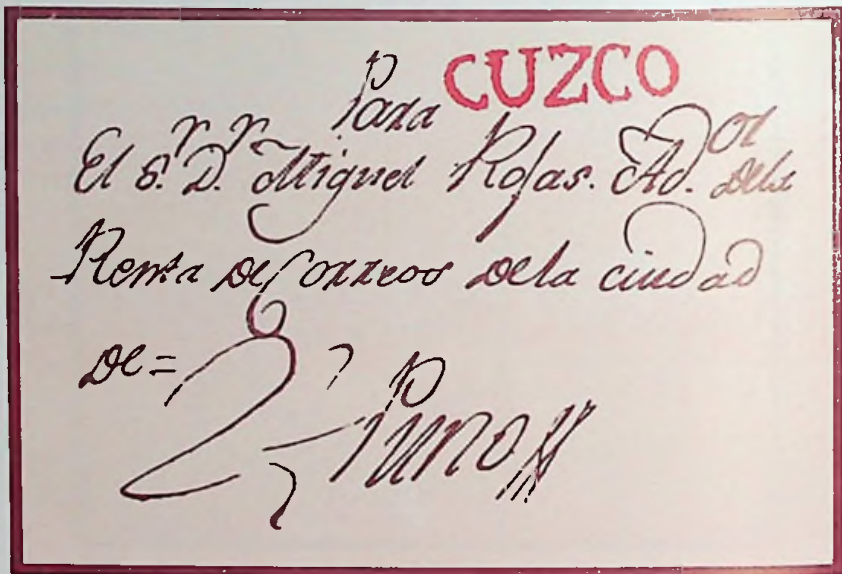 Para CUZCO
El S.r D.r Miguel Rojas. Ad.or dela
Renta de Correos dela ciudad
de=
Puno